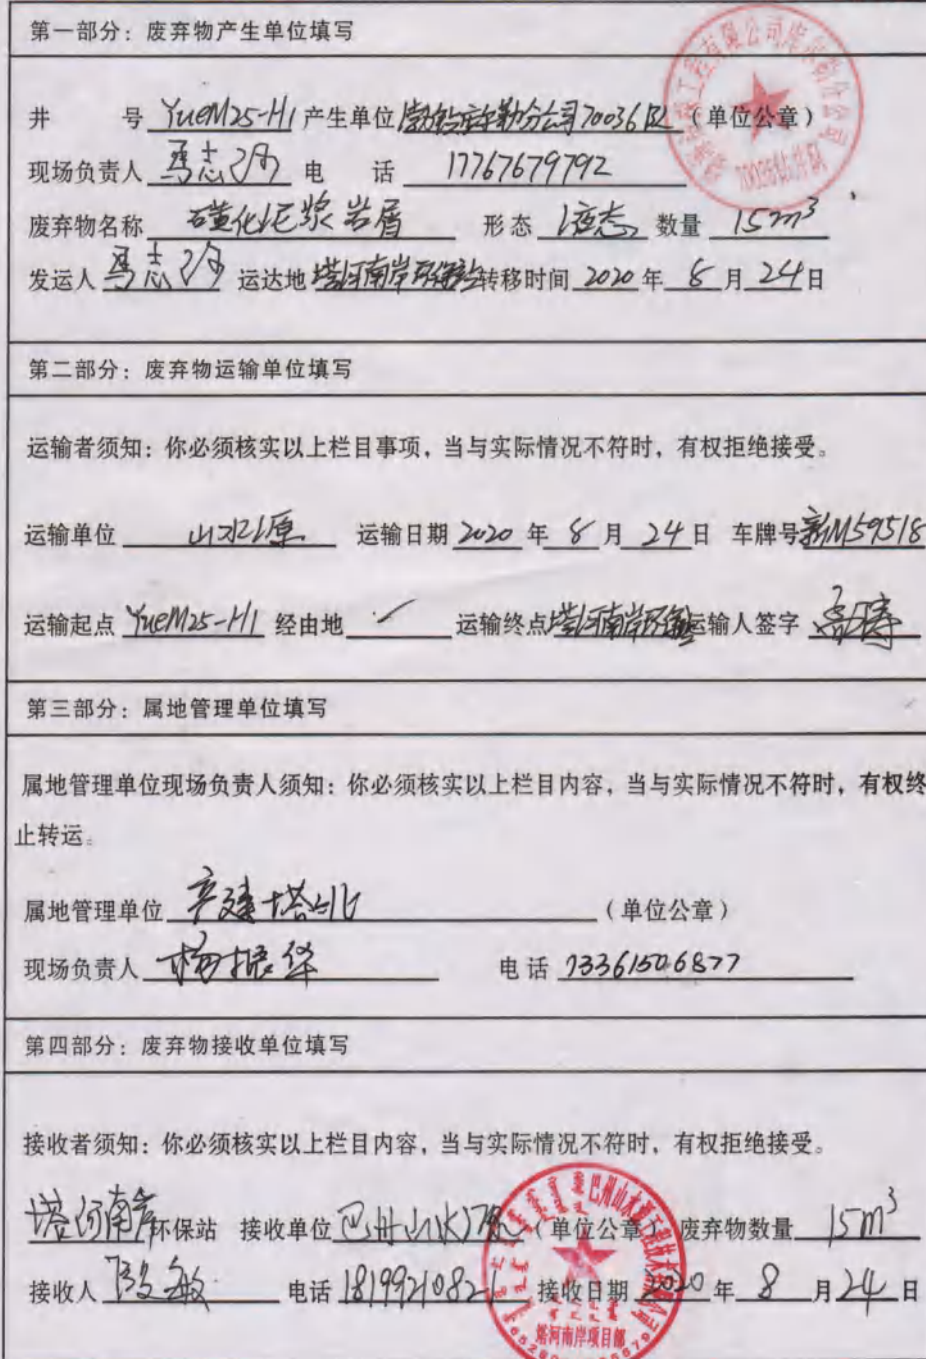 第一部分：废弃物产生单位填写
井 号 YueM25-H1 产生单位 渤钻库尔勒分公司70036队 （单位公章）
现场负责人 马志 电 话 17767679792
废弃物名称 磺化泥浆岩屑 形态 液态 数量 15m³
发运人 马志 运达地 塔河南岸环保站 转移时间 2020 年 8 月 24 日
70036钻井队
第二部分：废弃物运输单位填写
运输者须知：你必须核实以上栏目事项，当与实际情况不符时，有权拒绝接受。
运输单位 山水源 运输日期 2020 年 8 月 24 日 车牌号 新M59518
运输起点 YueM25-H1 经由地 ✓ 运输终点 塔河南岸环保站 运输人签字
第三部分：属地管理单位填写
属地管理单位现场负责人须知：你必须核实以上栏目内容，当与实际情况不符时，有权终
止转运。
属地管理单位 产建塔北 （单位公章）
现场负责人 杨振华 电话 13361506877
第四部分：废弃物接收单位填写
接收者须知：你必须核实以上栏目内容，当与实际情况不符时，有权拒绝接受。
塔河南岸 环保站 接收单位 巴州山水源 （单位公章） 废弃物数量 15m³
接收人 敏 电话 18199210821 接收日期 2020 年 8 月 24 日
塔河南岸项目部